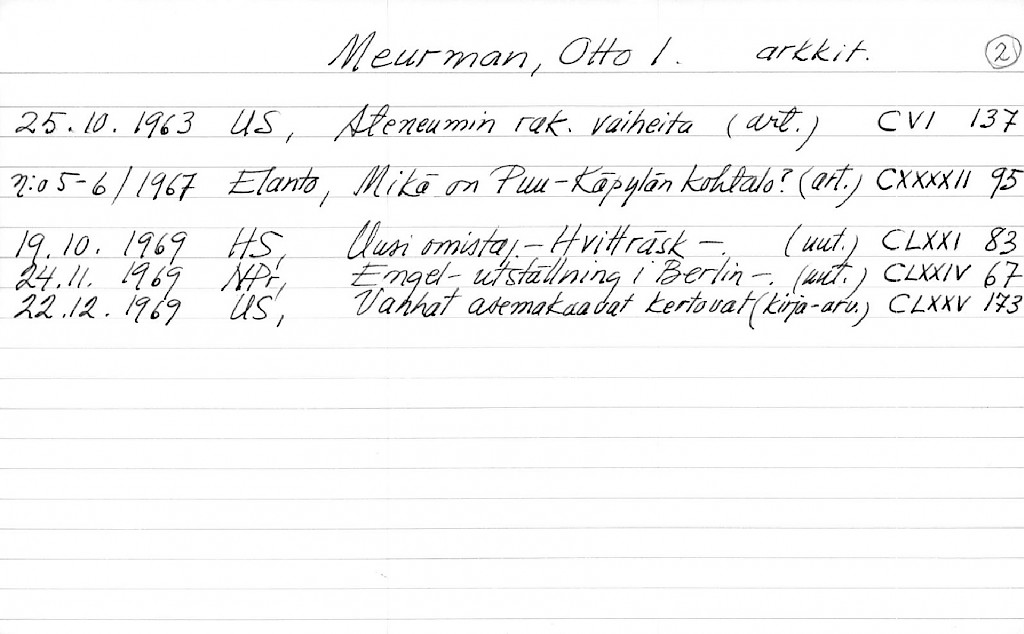 Meurman, Otto I. arkkit. 2
25.10.1963 US, Ateneumin rak. vaiheita (art.) CVI 137
n:o 5-6/1967 Elanto, Mikä on Puu-Käpylän kohtalo? (art.) CXXXXII 95
19.10.1969 HS, Uusi omistaj - Hvitträsk -. (uut.) CLXXI 83
24.11.1969 NPr, Engel-utställning i Berlin -. (uut.) CLXXIV 67
22.12.1969 US, Vanhat asemakaavat kertovat (kirja-arv.) CLXXV 173